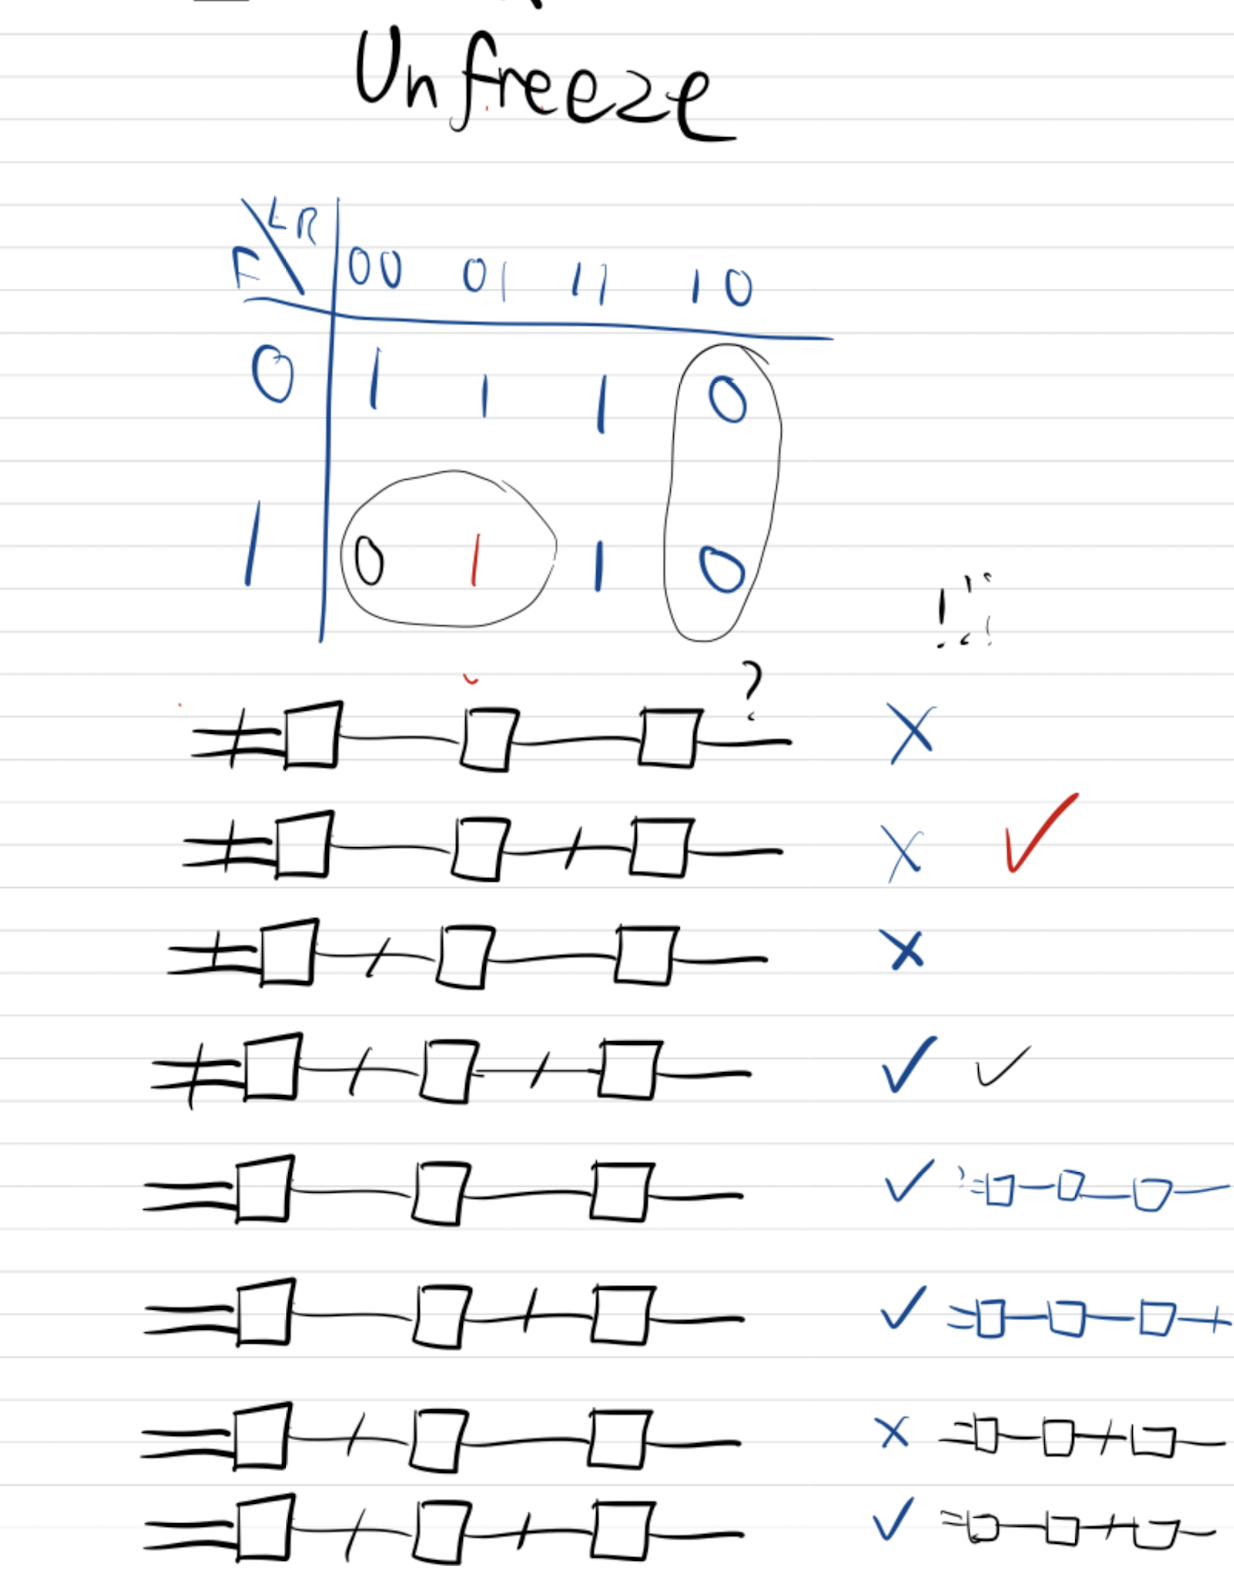 Unfreeze
LR
F 00 01 11 10
0 1 1 1 0
1 0 1 1 0
?